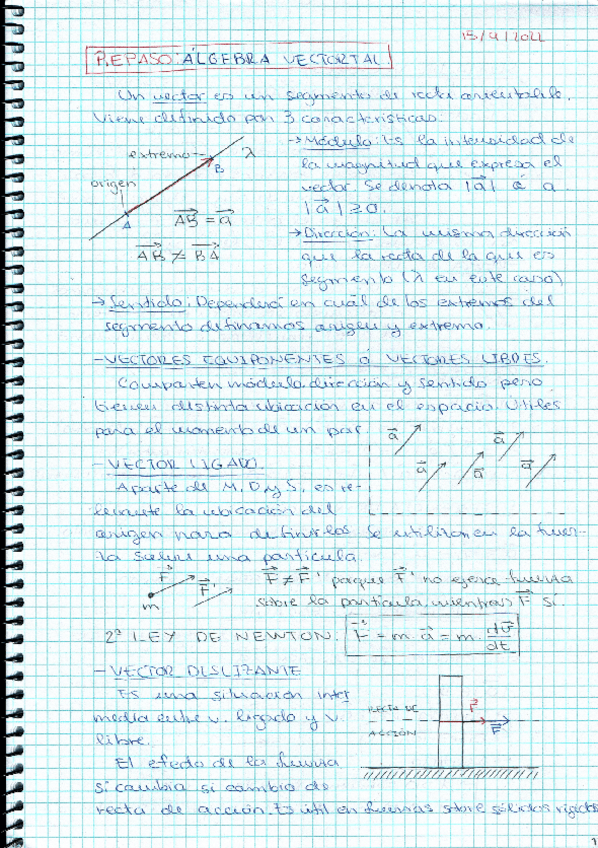 15/9/2022
REPASO: ÁLGEBRA VECTORIAL
Un vector es un segmento de recta orientable.
Viene definido por 3 características:
extremo
B
λ
origen
A
AB = a
AB ≠ BA
→ Módulo: Es la intensidad de
la magnitud que expresa el
vector. Se denota |a| ó a
|a| ≥ 0.
→ Dirección: La misma dirección
que la recta de la que es
segmento (λ en este caso)
→ Sentido: Dependerá en cuál de los extremos del
segmento definamos origen y extremo.
- VECTORES EQUIPONENTES Ó VECTORES LIBRES.
Comparten módulo, dirección y sentido pero
tienen distinta ubicación en el espacio. Útiles
para el momento de un par.
a a a a a
- VECTOR LIGADO.
Aparte de M, D y S, es re-
levante la ubicación del
origen para definirlos. Se utilizan en la fuer-
za sobre una partícula.
F
m
F'
F ≠ F' porque F' no ejerce fuerza
sobre la partícula, mientras F sí.
2ª LEY DE NEWTON: F = m · a = m · dv/dt
- VECTOR DESLIZANTE
Es una situación inter
media entre v. ligado y v.
libre.
RECTA DE
ACCIÓN
F
F
El efecto de la fuerza
sí cambia si cambio de
recta de acción. Es útil en fuerzas sobre sólidos rígidos
1